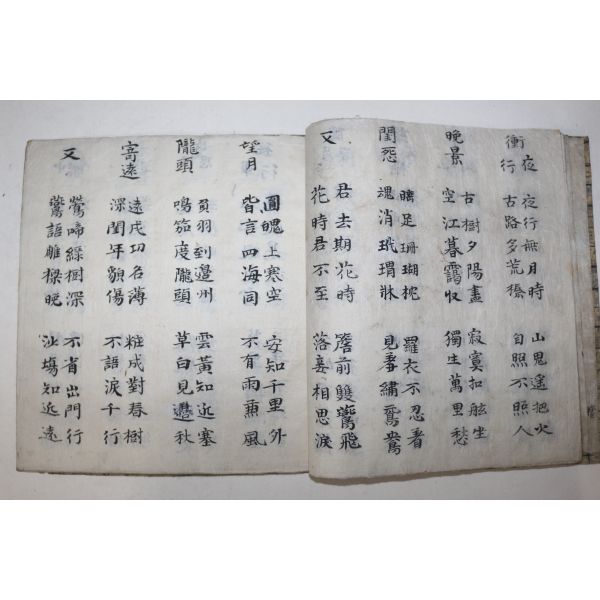 衝夜行
夜行無月時
古路多荒榛
山鬼遙把火
自照不照人
晚景
古樹夕陽盡
空江暮靄收
寂寞扣舷坐
獨生萬里愁
閨怨
足珊瑚枕
魂消玳瑁牀
羅衣不忍着
見羞繡鴛鴦
又
君去期花時
花時君不至
簷前雙鷰飛
落妾相思淚
望月
圓魄上寒空
皆言四海同
安知千里外
不有雨兼風
隴頭
負羽到邊州
鳴笳度隴頭
雲黃知近塞
草白見邊秋
寄遠
遠戍功名薄
深閨年貌傷
粧成對春樹
不語淚千行
又
鶯啼綠樹深
鷰語雕樑晚
不省出門行
沙塲知近遠